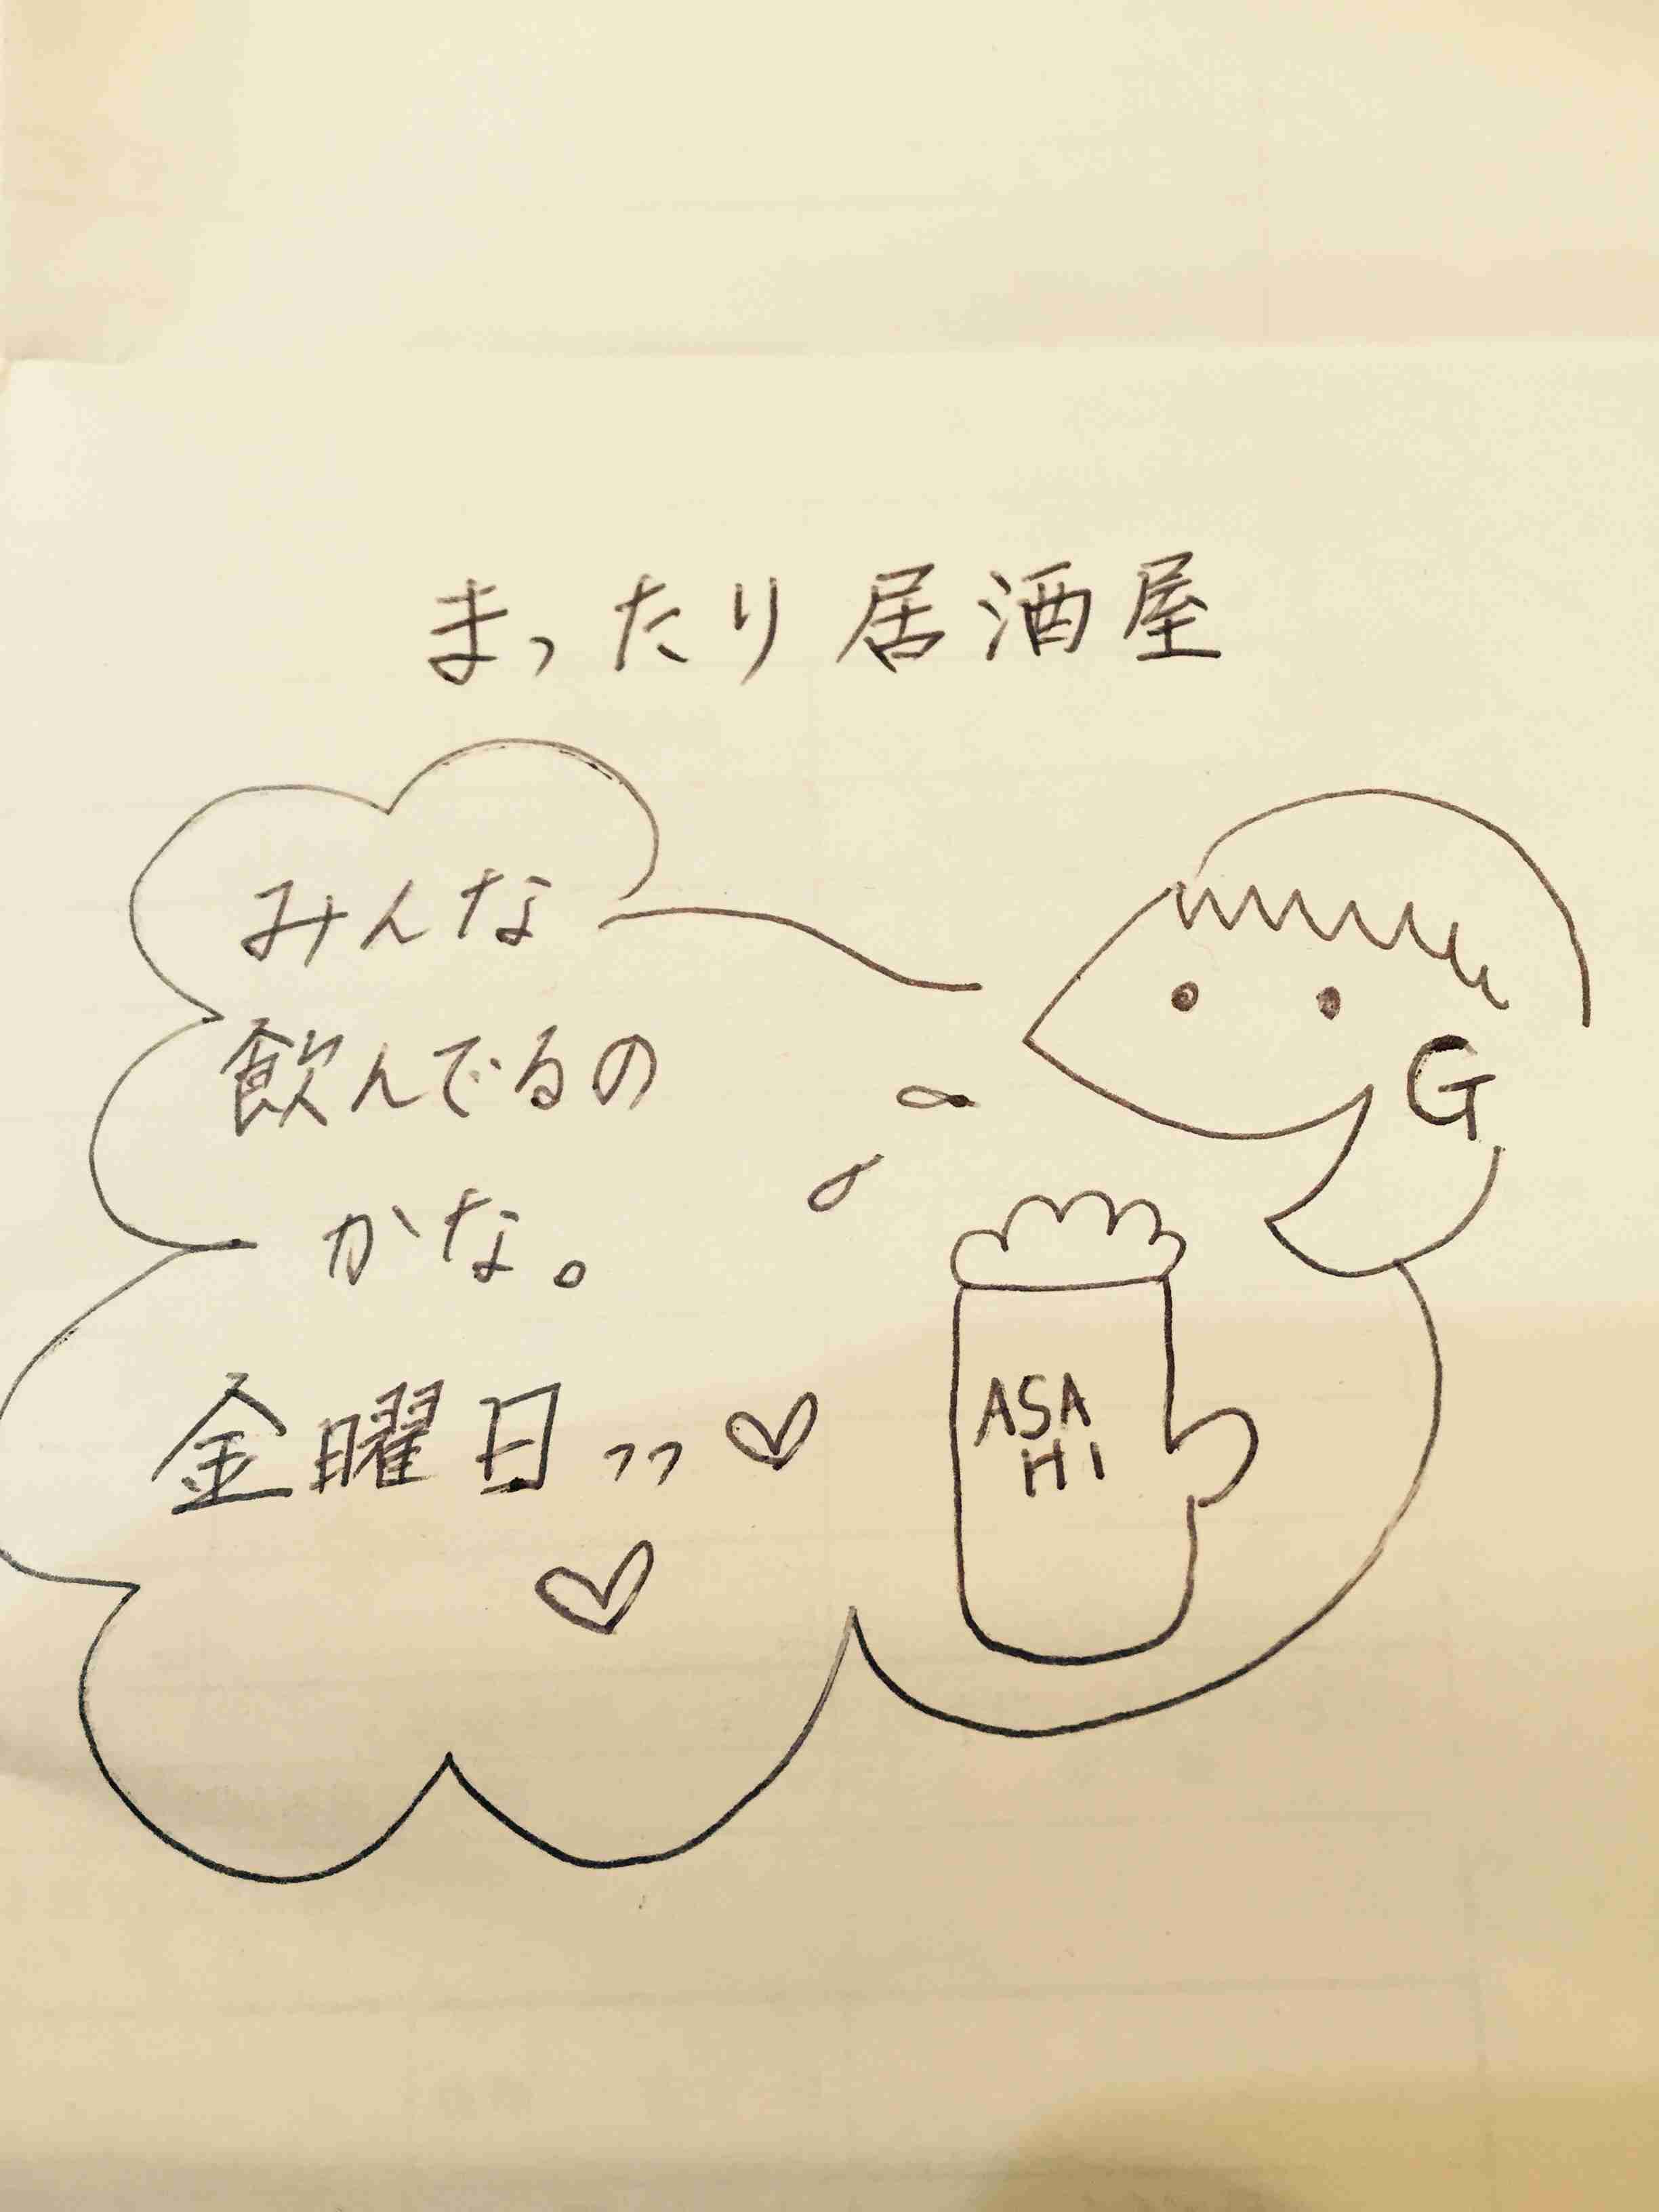 まったり居酒屋
みんな
飲んでるの
かな。
金曜日,,♡
♡
G
ASA
HI